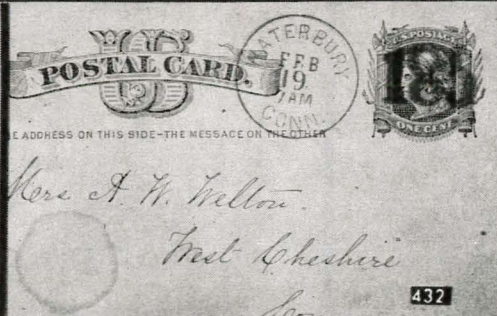 US
POSTAL CARD.
WATERBURY
FEB
19
7AM
CONN.
U.S. POSTAGE
ONE CENT
E ADDRESS ON THIS SIDE–THE MESSAGE ON THE OTHER
Mrs A. W. Welton.
West Cheshire
432